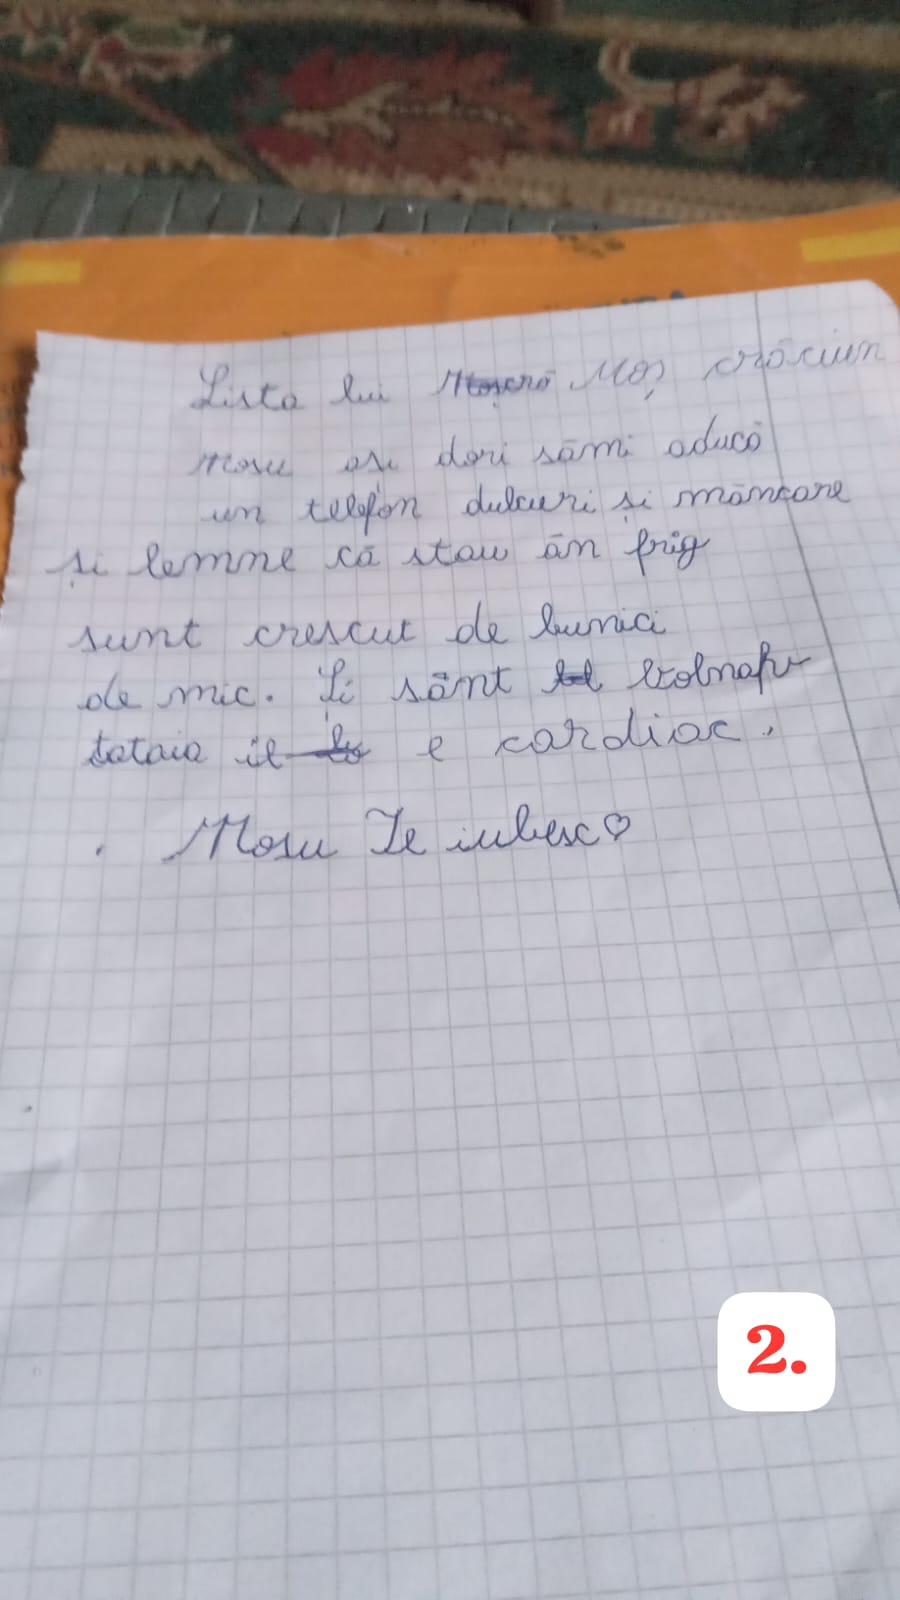 Lista lui Moș crăciun
Mosu ași dori sămi aducă
un telefon dulciuri și mâncare
și lemne că stau ân frig
sunt crescut de bunici
de mic. Și sânt bolnavi
tataia e cardiac.
Mosu Te iubesc♡
2.